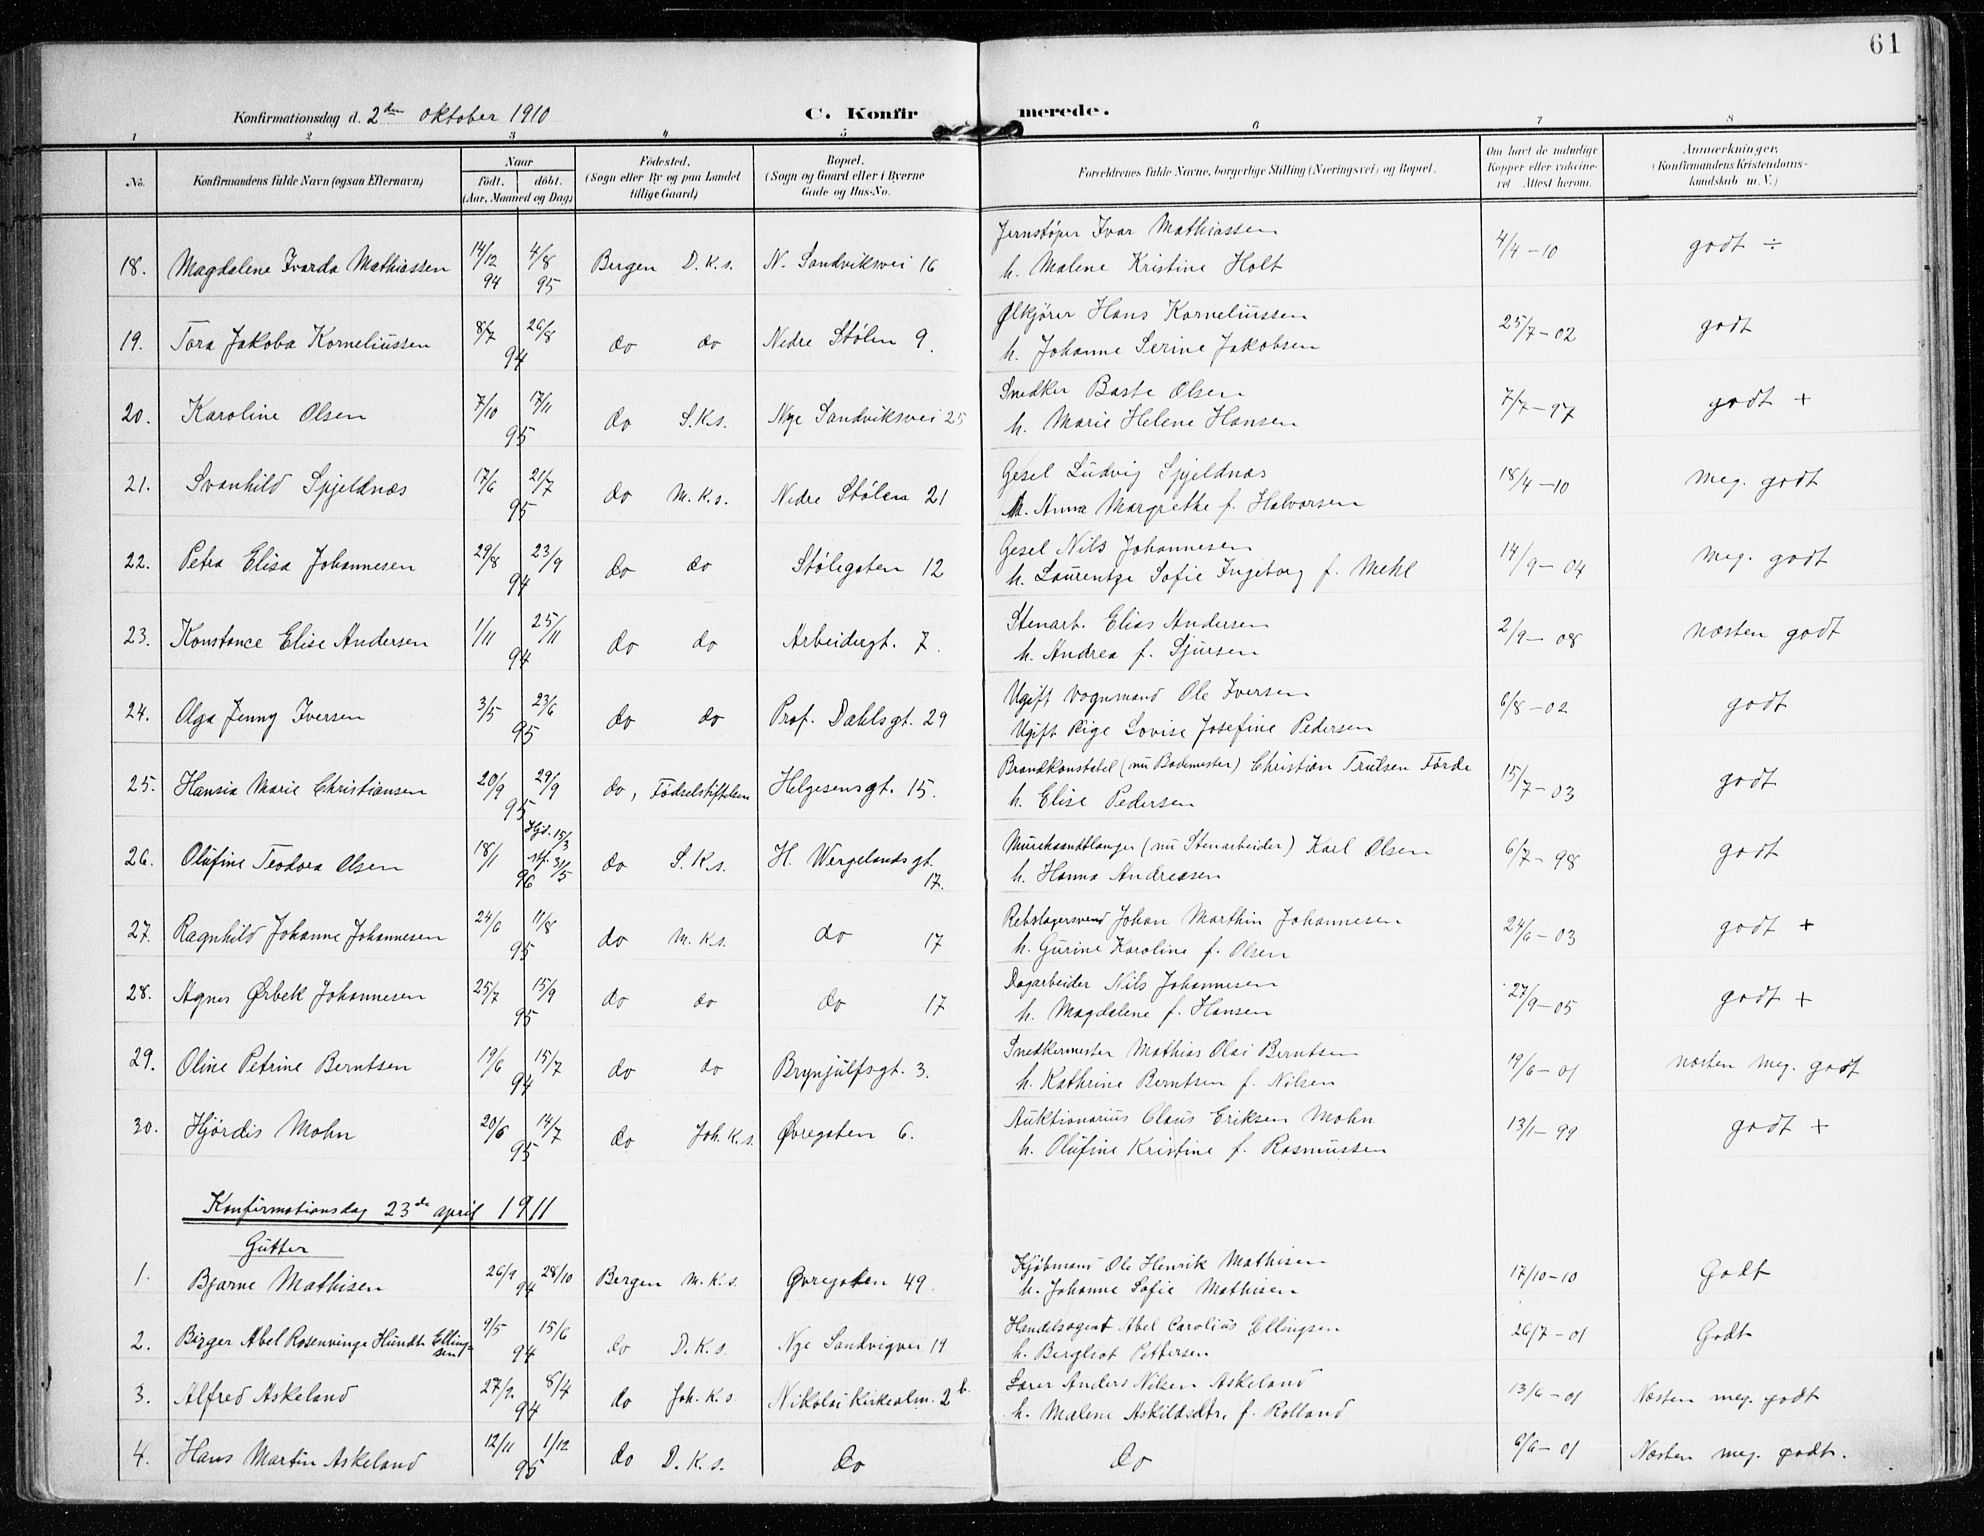 61
Konfirmationsdag d. 2den oktober 1910 C. Konfirmerede.
1 2 3 4 5 6 7 8
No. Konfirmandens fulde Navn (ogsaa Efternavn) Naar Født. døbt. (Aar, Maaned og Dag) Fødested. (Sogn eller By og paa Landet tillige Gaard) Bopæl. (Sogn og Gaard eller i Byerne Gade og Hus-No. Forældrenes fulde Navne, borgerlige Stilling (Næringsvei) og Bopæl. Om havt de naturlige Kopper eller vakcineret. Attest herom. Anmærkninger. (Konfirmandens Kristendomskundskab m. V.)
18. Magdalene Ivarda Mathiassen 14/12 94 4/8 95 Bergen D.k.s. N. Sandviksvei 16 Jernstøper Ivar Mathiassen 4/4-10 godt ÷
h. Malene Kristine Holt
19. Tora Jakoba Korneliussen 8/7 26/8 94 do do Nedre Stølen 9. Ølkjører Hans Korneliussen 25/7-02 godt
h. Johanne Serine Jakobsen
20. Karoline Olsen 7/10 17/11 95 do S.K.s. Nye Sandviksvei 25 Snedker Baste Olsen 7/7-97 godt +
h. Marie Helene Hansen
21. Svanhild Spjeldnæs 17/6 21/7 95 do M.K.s. Nedre Stølen 21 Gesel Ludvig Spjeldnæs 18/4-10 meg. godt
h. Anna Margrethe f. Halvorsen
22. Petra Elisa Johannesen 29/8 23/9 94 do do Stølegaten 12 Gesel Nils Johannesen 14/9-04 meg. godt
h. Laurentze Sofie Ingeborg f. Mehl
23. Konstance Elise Andersen 1/11 25/11 94 do do Arbeidergt. 7. Stenarb. Elias Andersen 2/9-08 næsten godt
h. Andrea f. Sjursen
24. Olga Jenny Iversen 3/5 23/6 95 do do Prof. Dahlsgt. 29 Ugift Vognmand Ole Iversen 6/8-02 godt
Ugift Pige Lovise Josefine Pedersen
25. Hansia Marie Christiansen 20/9 29/9 95 do, Fødselstiftelsen Helgesensgt. 15. Brandkonstabel (nu Bademester) Christian Trulsen Førde 15/7-03 godt
h. Elise Pedersen
26. Olufine Teodora Olsen 18/1 Hjd. 15/3 stf. 31/5 96 do S.K.s. H. Wergelandsgt. 17. Murhaandtlanger (nu Stenarbeider) Karl Olsen 6/7-98 godt
h. Hanna Andreasen
27. Ragnhild Johanne Johannesen 24/6 11/8 95 do M.K.s. do 17 Rebslagersvend Johan Marthin Johannesen 24/6-03 godt +
h. Gurine Karoline f. Olsen
28. Agnes Ørbek Johannesen 25/7 15/9 95 do do do 17 Dagarbeider Nils Johannesen 27/9-05 godt +
h. Magdalene f. Hansen
29. Oline Petrine Berntsen 19/6 15/7 94 do do Brynjulfsgt. 3. Snedkermester Mathias Olai Berntsen 19/6-01 næsten meg. godt
h. Kathrine Berntsen f. Nilsen
30. Hjørdis Mohn 20/6 14/7 95 do Joh.K.s. Øvregaten 6. Auktionarius Claus Eriksen Mohn 13/1-99 godt +
h. Olufine Kristine f. Rasmussen
Konfirmationsdag 23de april 1911
Gutter
1. Bjarne Mathisen 26/9 28/10 94 Bergen M.K.s. Øvregaten 49. Kjøbmand Ole Henrik Mathisen 17/10-10 Godt
h. Johanne Sofie Mathisen
2. Birger Abel Rosenvinge Hundt Ellingsen 9/5 15/6 94 do D.K.s. Nye Sandvigvei 19 Handelsagent Abel Carolius Ellingsen 26/7-01 Godt
h. Bergliot Pettersen
3. Alfred Askeland 27/2 8/4 94 do Joh.K.s Nikolai Kirkealm. 2b. Lærer Anders Nilsen Askeland 13/6-01 Næsten meg. godt
h. Malene Askildsdtr. f. Rolland
4. Hans Martin Askeland 12/11 1/12 95 do D.K.s. do do 6/6-01 Næsten meg. godt.